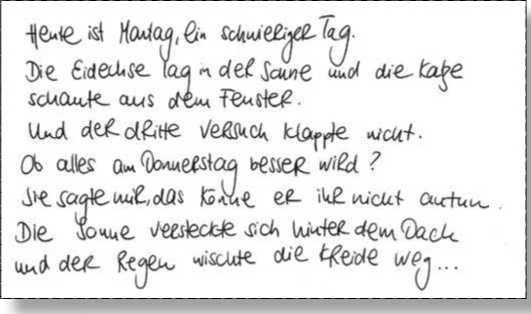 Heute ist Montag, ein schwieriger Tag.
Die Eidechse lag in der Sonne und die Katze
schaute aus dem Fenster.
Und der dritte Versuch klappte nicht.
Ob alles am Donnerstag besser wird?
Sie sagte mir, das könne er ihr nicht antun.
Die Sonne versteckte sich hinter dem Dach
und der Regen wischte die Kreide weg...